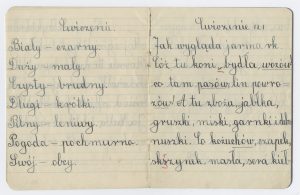 Ćwiczenia.
Biały – czarny.
Duży – mały.
Czysty – brudny.
Długi – krótki.
Pilny – leniwy.
Pogoda – pochmurna.
Swój – obcy.
Ćwiczenie
Jak wygląda jarmark.
Cóż tu koni, bydła, wozów
co tam pasów lin powro-
zów. A tu zboża, jabłka,
gruszki, miski, garnki i
nuszki. To kożuchów, czapek,
skrzynek, masła, sera